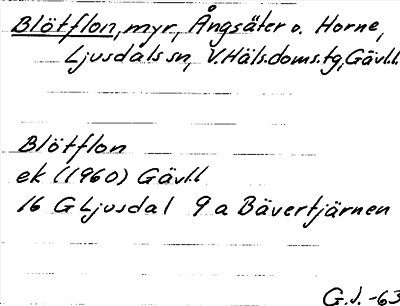 Blötflon, myr, Ångsäter o. Horne,
Ljusdals sn, V.Häls.doms.tg, Gävl.l.
Blötflon
ek (1960) Gävl.l
16 G Ljusdal 9 a Bävertjärnen
G.J. -63